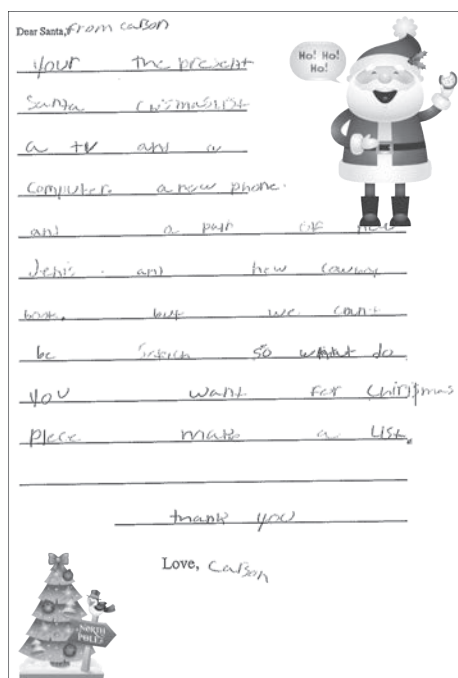 Dear Santa, From Carson
Ho! Ho!
Ho!
your the present
Santa crismaslist
a tv and a
computer. a new phone.
and a pair of new
Jenis. and new cowboy
boots. but we can't
be so what do
you want for Chirjsmas
Plece make a List.
thank you
Love, Carson
NORTH
POLE